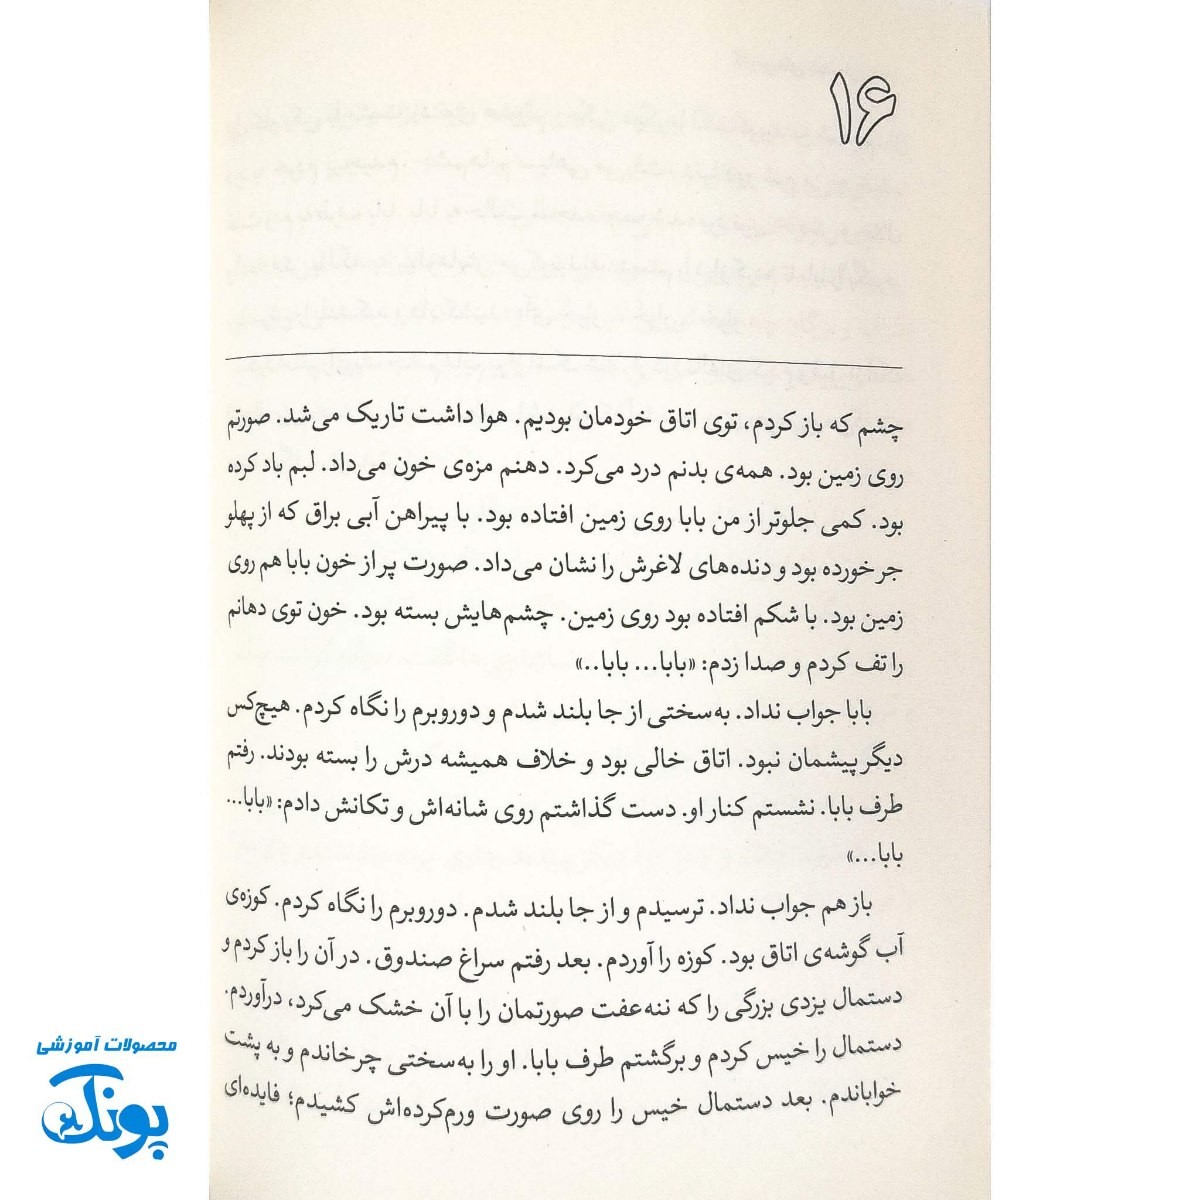 ۱۶
چشم که باز کردم، توی اتاق خودمان بودیم. هوا داشت تاریک می‌شد. صورتم
روی زمین بود. همه‌ی بدنم درد می‌کرد. دهنم مزه‌ی خون می‌داد. لبم باد کرده
بود. کمی جلوتر از من بابا روی زمین افتاده بود. با پیراهن آبی براق که از پهلو
جر خورده بود و دنده‌های لاغرش را نشان می‌داد. صورت پر از خون بابا هم روی
زمین بود. با شکم افتاده بود روی زمین. چشم‌هایش بسته بود. خون توی دهانم
را تف کردم و صدا زدم: «بابا... بابا..»
بابا جواب نداد. به‌سختی از جا بلند شدم و دوروبرم را نگاه کردم. هیچ‌کس
دیگر پیشمان نبود. اتاق خالی بود و خلاف همیشه درش را بسته بودند. رفتم
طرف بابا. نشستم کنار او. دست گذاشتم روی شانه‌اش و تکانش دادم: «بابا...
بابا...»
باز هم جواب نداد. ترسیدم و از جا بلند شدم. دوروبرم را نگاه کردم. کوزه‌ی
آب گوشه‌ی اتاق بود. کوزه را آوردم. بعد رفتم سراغ صندوق. در آن را باز کردم و
دستمال یزدی بزرگی را که ننه‌عفت صورتمان را با آن خشک می‌کرد، درآوردم.
دستمال را خیس کردم و برگشتم طرف بابا. او را به‌سختی چرخاندم و به پشت
خواباندم. بعد دستمال خیس را روی صورت ورم‌کرده‌اش کشیدم؛ فایده‌ای
محصولات آموزشی
پونک